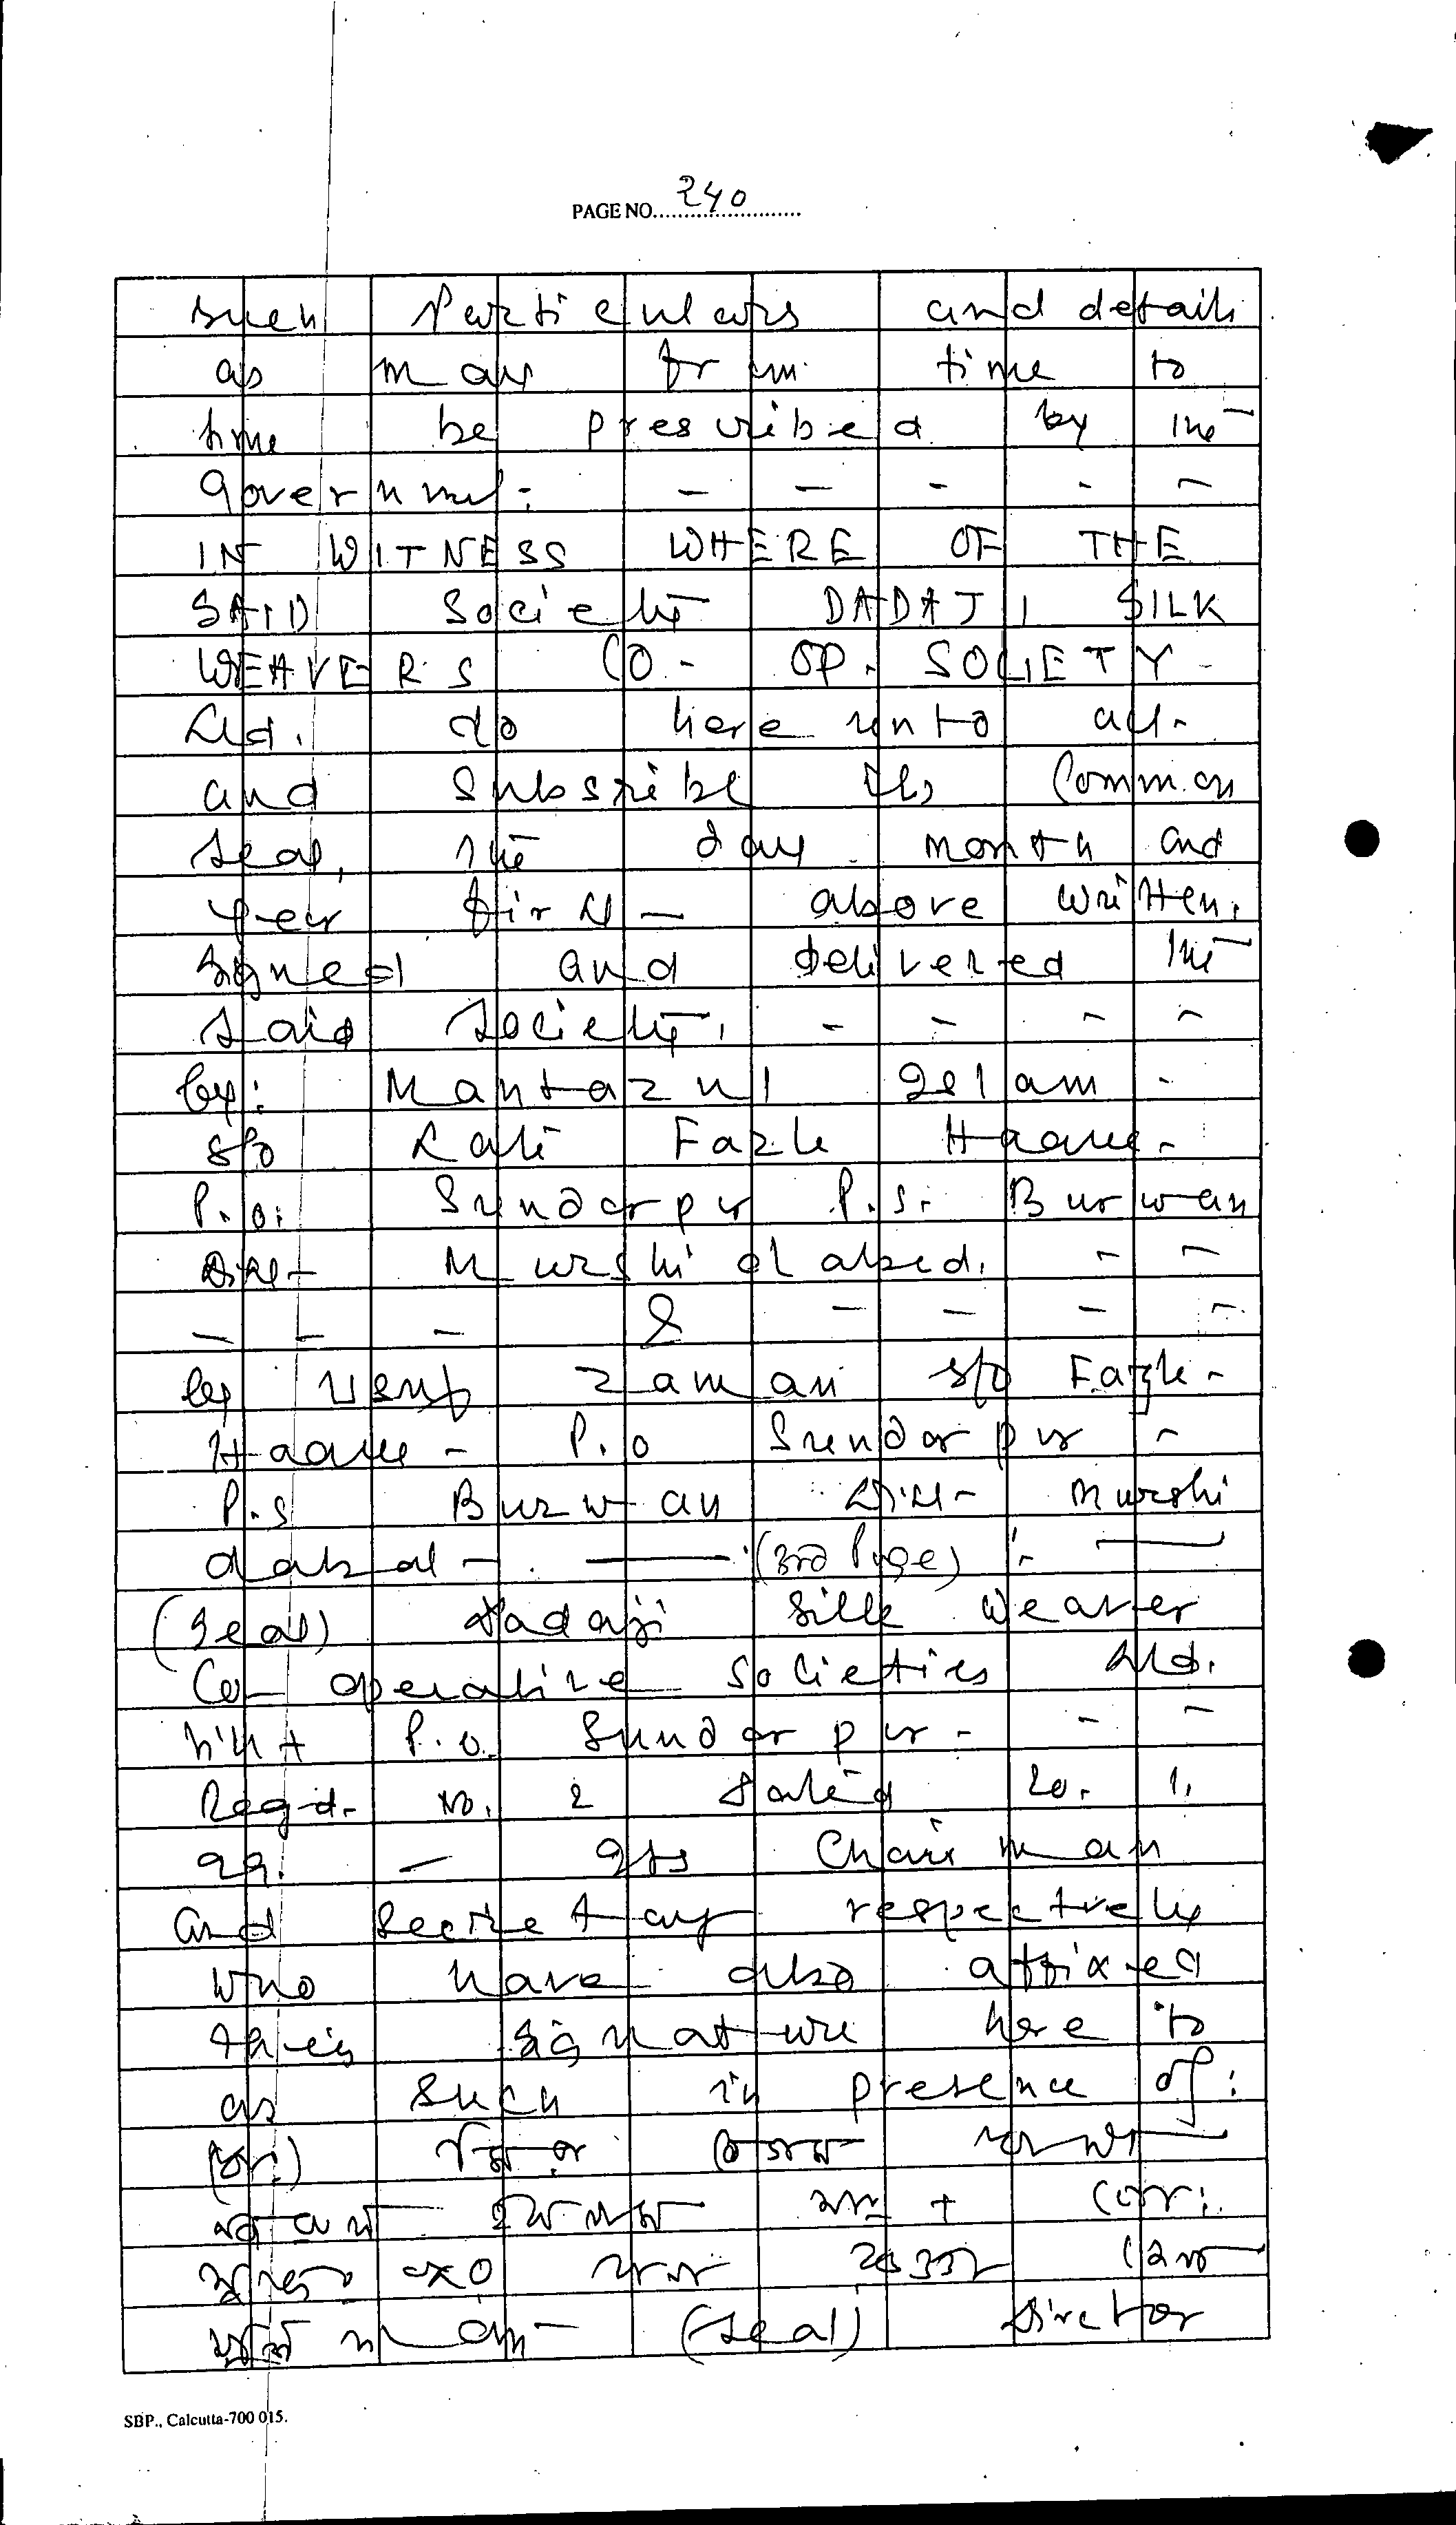 PAGE NO. 240
such Particulars and details
as may from time to
time be prescribed by the
Government: - - - - -
IN WITNESS WHERE OF THE
SAID Society DADAJI SILK
WEAVERS CO- OP. SOCIETY -
Ltd. do here unto all-
and Subscribe its Common
Seal, the day month and
year first - above written.
Signed and delivered the
Said Society, - - - -
by: Mantazul Islam -
S/o Late Fazle Haque -
P.O. Sundarpur P.S. Burwan
Dist- Murshidabad. - -
- - - & - - - -
by Usuf Zaman S/o Fazle -
Haque - P.O Sundarpur -
P.S Burwan Dist- Murshi
dabad - (3rd Page) :-
(Seal) Dadaji Silk Weaver
Co- operative Societies Ltd.
P.O. Sundarpur - - -
Regd. No. 2 Dated 20. 1.
99. - Its Chairman
and Secretary respectively
who have also affixed
their signature here to
as such in presence of:
+ Corr:
(Seal) Director
SBP., Calcutta-700 015.